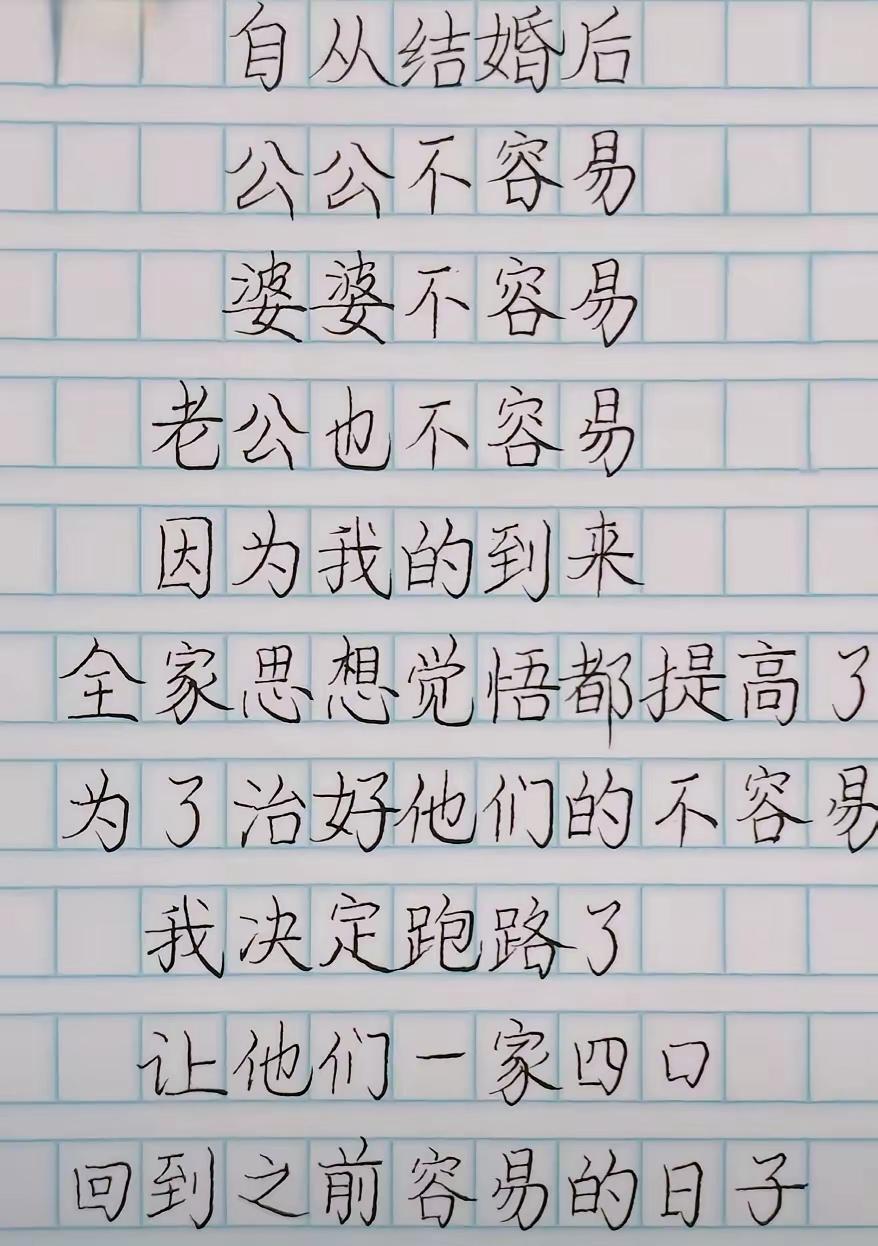 自从结婚后
公公不容易
婆婆不容易
老公也不容易
因为我的到来
全家思想觉悟都提高了
为了治好他们的不容易
我决定跑路了
让他们一家四口
回到之前容易的日子